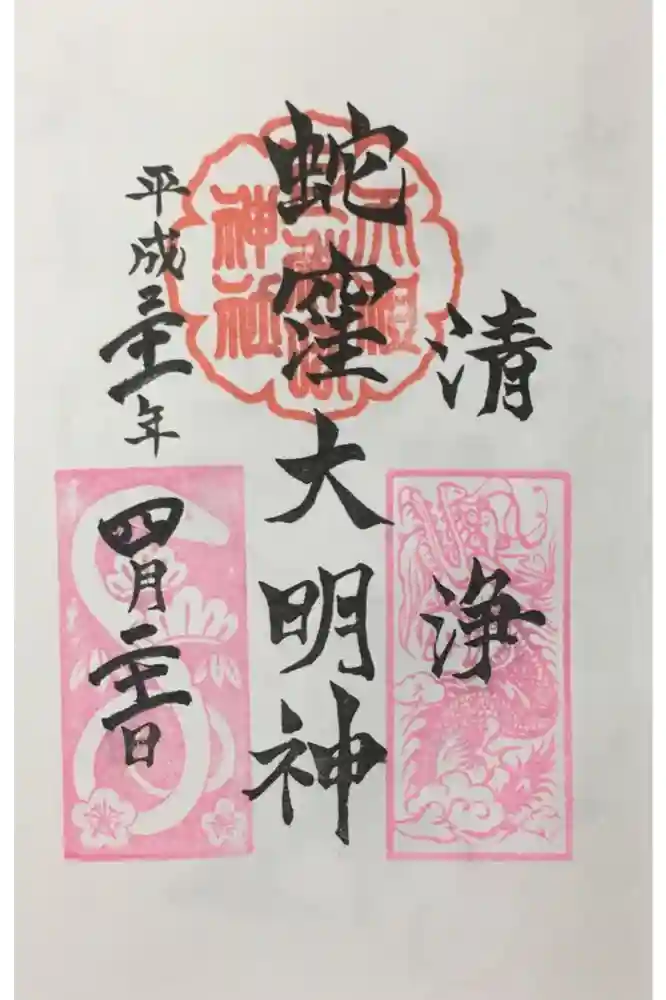 清浄
蛇窪大明神
平成三十一年四月二十一日